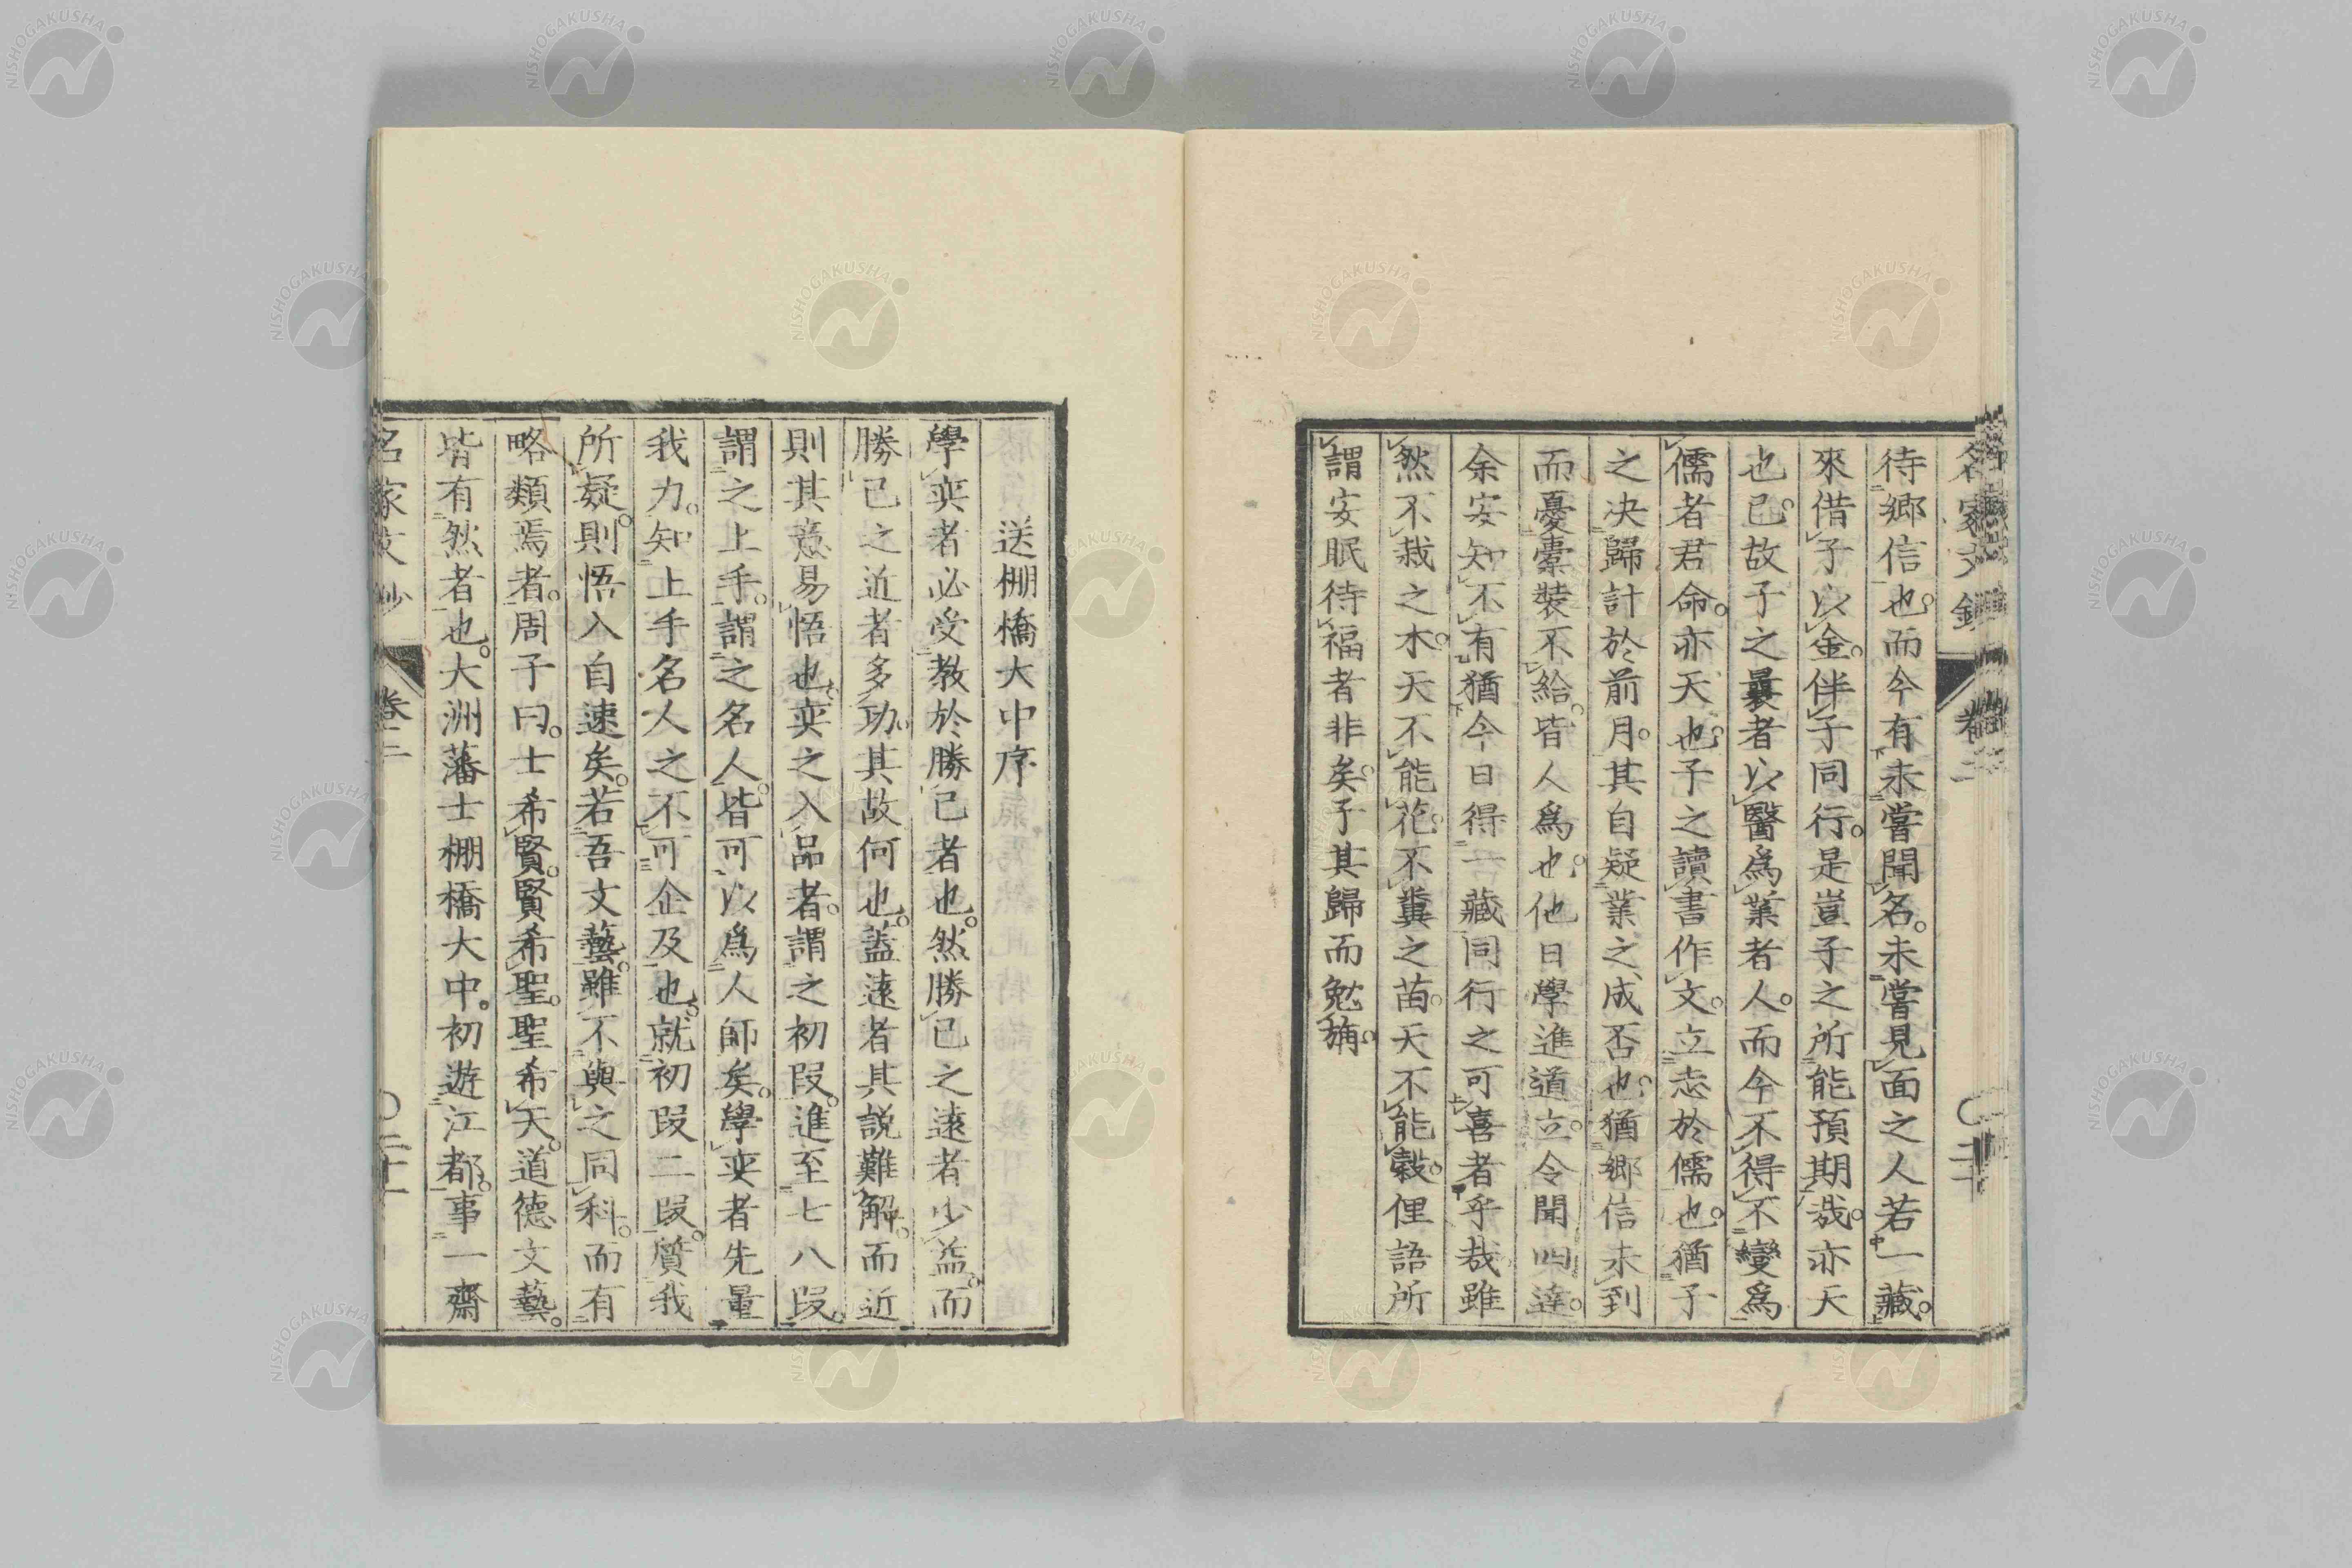 待鄉信也而今有未嘗聞名。未嘗見面之人若一藏。
來借子以金。伴子同行。是豈子之所能預期哉。亦天
也。已故子之曩者以醫爲業者人。而今不得不變爲
儒者君命。亦天也。子之讀書作文。立志於儒也。猶子
之决歸計於前月。其自疑業之成否也。猶鄉信未到
而憂橐裝不給。皆人爲也。他日學進道立。令聞四達。
余安知不有猶今日得一藏同行之可喜者乎哉雖
然不栽之木。天不能花。不糞之苗。天不能穀。俚語所
謂安眠待福者非矣。子其歸而勉旃。
送棚橋大中序
學奕者必受教於勝己者也。然勝己之遠者少益。而
勝己之近者多功。其故何也。蓋遠者其説難解。而近
則其意易悟也。奕之入品者。謂之初段。進至七八段。
謂之上手。謂之名人。皆可以爲人師矣。學奕者先量
我力。知上手名人之不可企及也。就初段二段。質我
所疑。則悟入自速矣。若吾文藝。雖不與之同科。而有
略類焉者。周子曰。士希賢。賢希聖。聖希天。道德文藝。
皆有然者也。大洲藩士棚橋大中。初遊江都。事一齋
名家文鈔 卷二 〇二十一
NISHOGAKUSHA